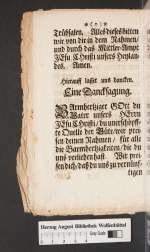 Trübsalen. Alles dieses bitten
wir von dir in dem Nahmen/
und durch das Mittler-Ampt
JEsu Christi unsers Heylan-
des. Amen.
Hierauf lasset uns dancken.
Eine Dancksagung.
BArmhertziger GOtt du
Vater unsers HErrn
JEsu Christi/ du unerschöpff-
te Quelle der Güte/ wir prei-
sen deinen Nahmen/ für alle
die Barmhertzigkeiten/ die du
uns verliehen hast. Wir prei-
sen dich/ daß du uns zu vernünf-
tigen
Herzog August Bibliothek Wolfenbüttel